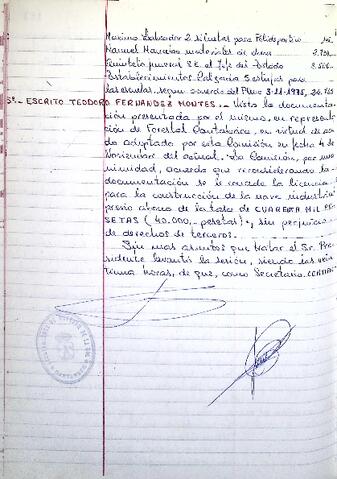 Maximo Salvador 2 sillitas para
Manuel Macaias materiales de obra
Quinteto funeral S.E. el Jefe del Estado
Establecimientos Calparia 5 estufas para
las escuelas, según acuerdo del Pleno 3-11-1975, 26.725
5º.- ESCRITO TEODORO FERNANDEZ MONTES.- Vista la documenta-
ción presentada por el mismo, en representa-
ción de Forestal Cantabrica, en virtud de acuer-
do adoptado por esta Comisión en fecha 4 de
Noviembre del actual. La Comisión, por una-
nimidad, acuerda que reconsiderando la
documentación se le conceda la licencia
para la construcción de la nave industrial
previo abono de la tasa de CUARENTA MIL PE-
SETAS (40.000,- pesetas), sin perjuicio
de derechos de terceros.
Sin mas asuntos que tratar el Sr. Pre-
sidente levantó la sesión, siendo las vein-
tiuna horas, de que, como Secretario. CERTIFICO